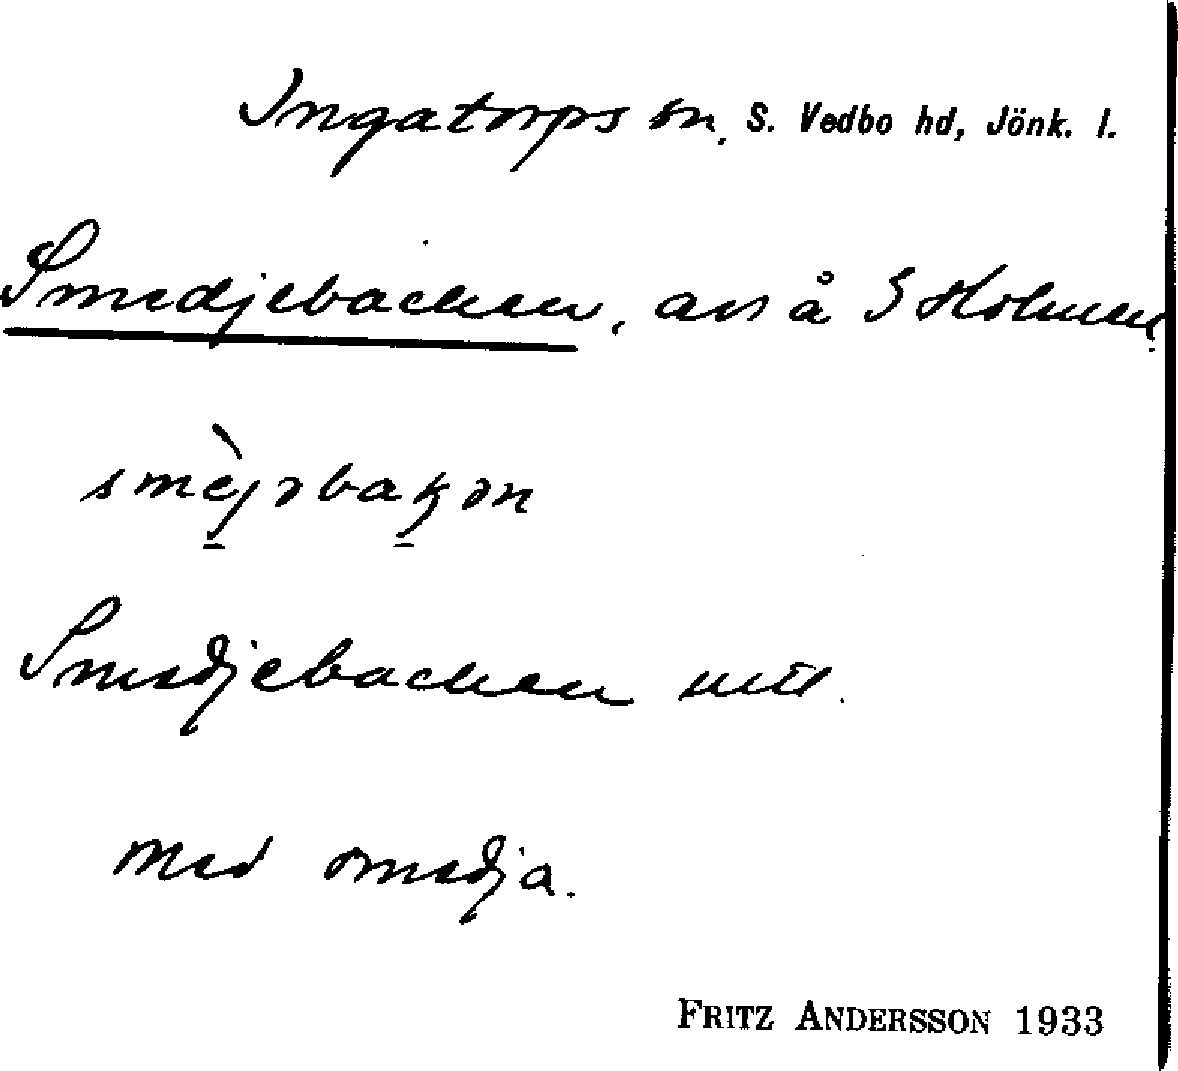 Ingatorps sn, S. Vedbo hd, Jönk. l.
Smedjebacken, avs å S Holmen.
smèjəbakən
Smedjebacken
med smedja.
FRITZ ANDERSSON 1933